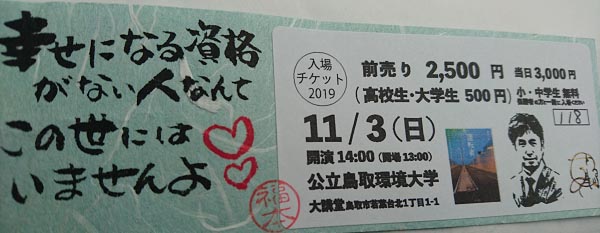 幸せになる資格
がない人なんて
この世には
いませんよ
福本
入場
チケット
2019
前売り 2,500 円 当日 3,000円
(高校生・大学生 500円) 小・中学生 無料
118
11/3(日)
開演 14:00 (開場 13:00)
公立鳥取環境大学
大講堂 鳥取市若葉台北1丁目1-1